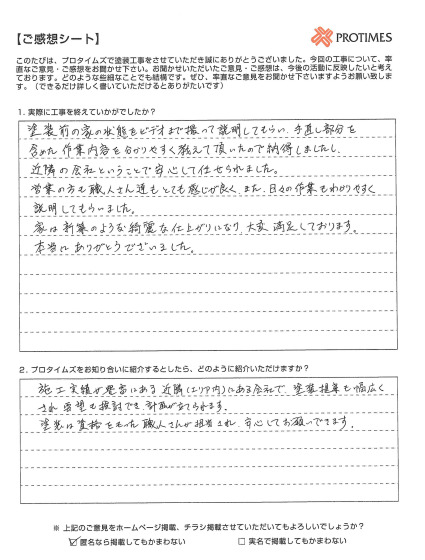 【ご感想シート】
PROTIMES
このたびは、プロタイムズで塗装工事をさせていただき誠にありがとうございました。今回の工事について、率
直なご意見・ご感想をお聞かせ下さい。お聞かせいただいたご意見・ご感想は、今後の活動に反映したいと考え
ております。どのような些細なことでも結構です。ぜひ、率直なご意見をお聞かせ下さいますようお願い致しま
す。（できるだけ詳しく書いていただけるとありがたいです）
1. 実際に工事を終えていかがでしたか？
塗装前の家の状態をビデオまで撮って説明してもらい、手直し部分を
含めた作業内容を分かりやすく教えて頂いたので納得しましたし、
近隣の会社ということで安心して任せられました。
営業の方も職人さん達もとても感じが良く、また、日々の作業もわかりやすく
説明してもらいました。
家は新築のような綺麗な仕上がりになり、大変満足しております。
本当にありがとうございました。
2. プロタイムズをお知り合いに紹介するとしたら、どのように紹介いただけますか？
施工実績が豊富にある近隣(エリア内)にある会社で、塗装提案も幅広く
され希望も検討でき、計画が立てられます。
塗装は資格をもった職人さんが担当され、安心してお願いできます。
※ 上記のご意見をホームページ掲載、チラシ掲載させていただいてもよろしいでしょうか？
☑ 匿名なら掲載してもかまわない □ 実名で掲載してもかまわない